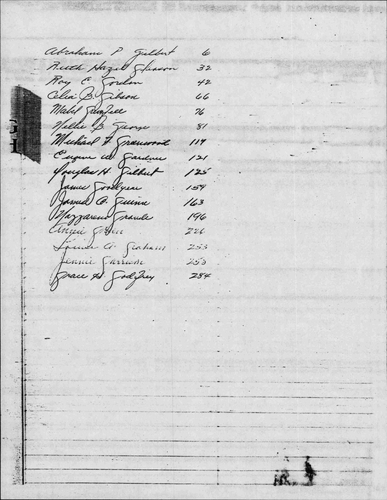 Abraham P. Gilbert 6
Ruth Hazel Gleason 32
Roy E. Gordon 42
Celia B. Gibson 66
Mabel 76
Nellie B. George 81
Michael F. Greenwood 119
Eugene W. Gardner 121
Douglas H. Gilbert 125
James Goodyear 154
James A. Guinn 163
Nazzareno Grande 196
Angie Green 226
A. Graham 253
Jennie Garrison 253
Grace H. Godfrey 254